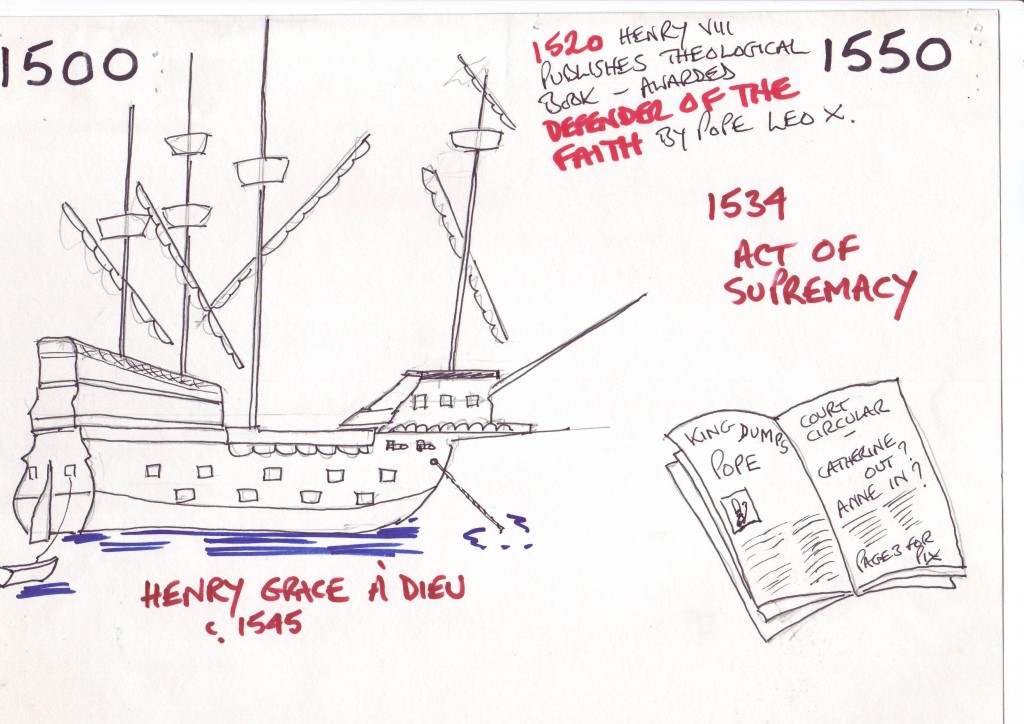 1500
1520 HENRY VIII
PUBLISHES THEOLOGICAL
BOOK – AWARDED
DEFENDER OF THE
FAITH BY POPE LEO X.
1550
1534
ACT OF
SUPREMACY
KING DUMPS
POPE
COURT
CIRCULAR
—
CATHERINE?
OUT
ANNE IN?
PAGE 3 FOR
PIX
HENRY GRACE À DIEU
c. 1545